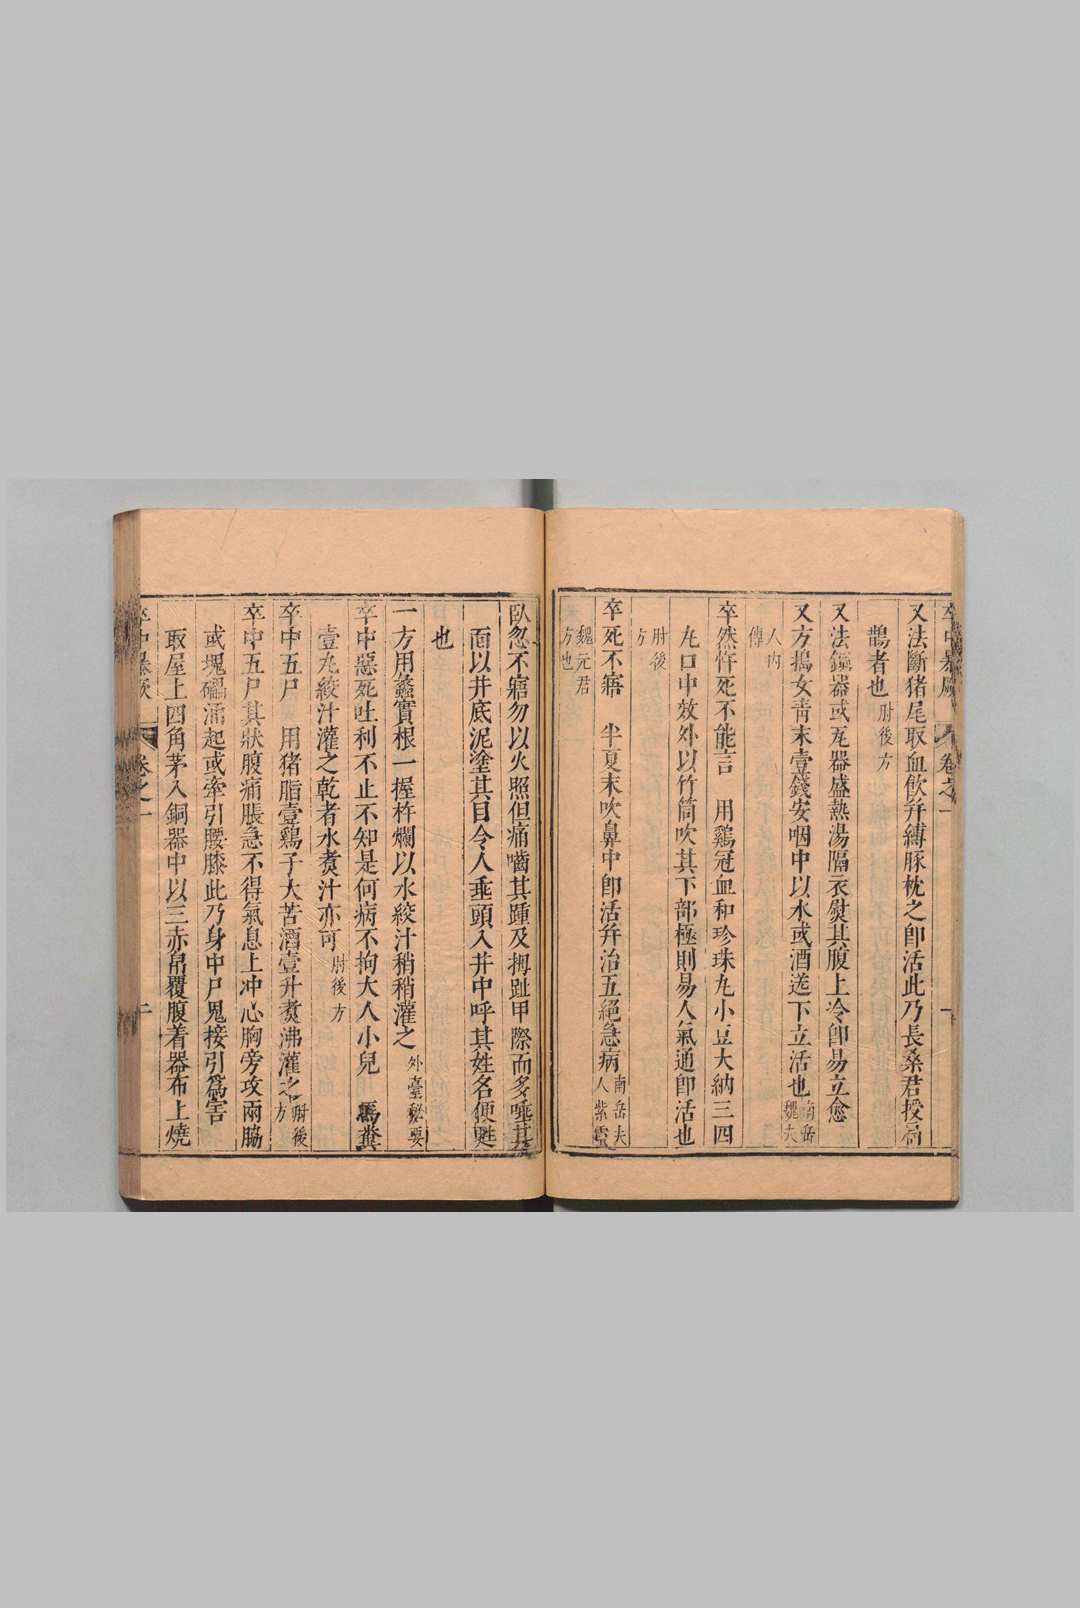 卒中暴厥 卷之一
又法斷猪尾取血飲并縛豚枕之卽活此乃長桑君授扁
鵲者也肘後方
又法銅器或瓦器盛熱湯隔衣熨其腹上冷卽易立愈
又方搗女靑末壹錢安咽中以水或酒送下立活也南岳魏夫
人內傳
卒然忤死不能言 用鷄冠血和珍珠丸小豆大納三四
丸口中效外以竹筒吹其下部極則易人氣通卽活也
肘後方
卒死不寤 半夏末吹鼻中卽活并治五絕急病南岳夫人紫靈
魏元君方也
臥忽不寤勿以火照但痛嚙其踵及拇趾甲際而多唾其
面以井底泥塗其目令人垂頭入井中呼其姓名便甦
也
一方用蠡實根一握杵爛以水絞汁稍稍灌之外臺秘要
卒中惡死吐利不止不知是何病不拘大人小兒 馬糞
壹丸絞汁灌之乾者水煑汁亦可肘後方
卒中五尸 用猪脂壹鷄子大苦酒壹升煑沸灌之肘後方
卒中五尸其狀腹痛脹急不得氣息上冲心胸旁攻兩脇
或塊磥涌起或牽引腰膝此乃身中尸鬼接引爲害
取屋上四角茅入銅器中以三赤帛覆腹着器布上燒
卒中暴厥 卷之一